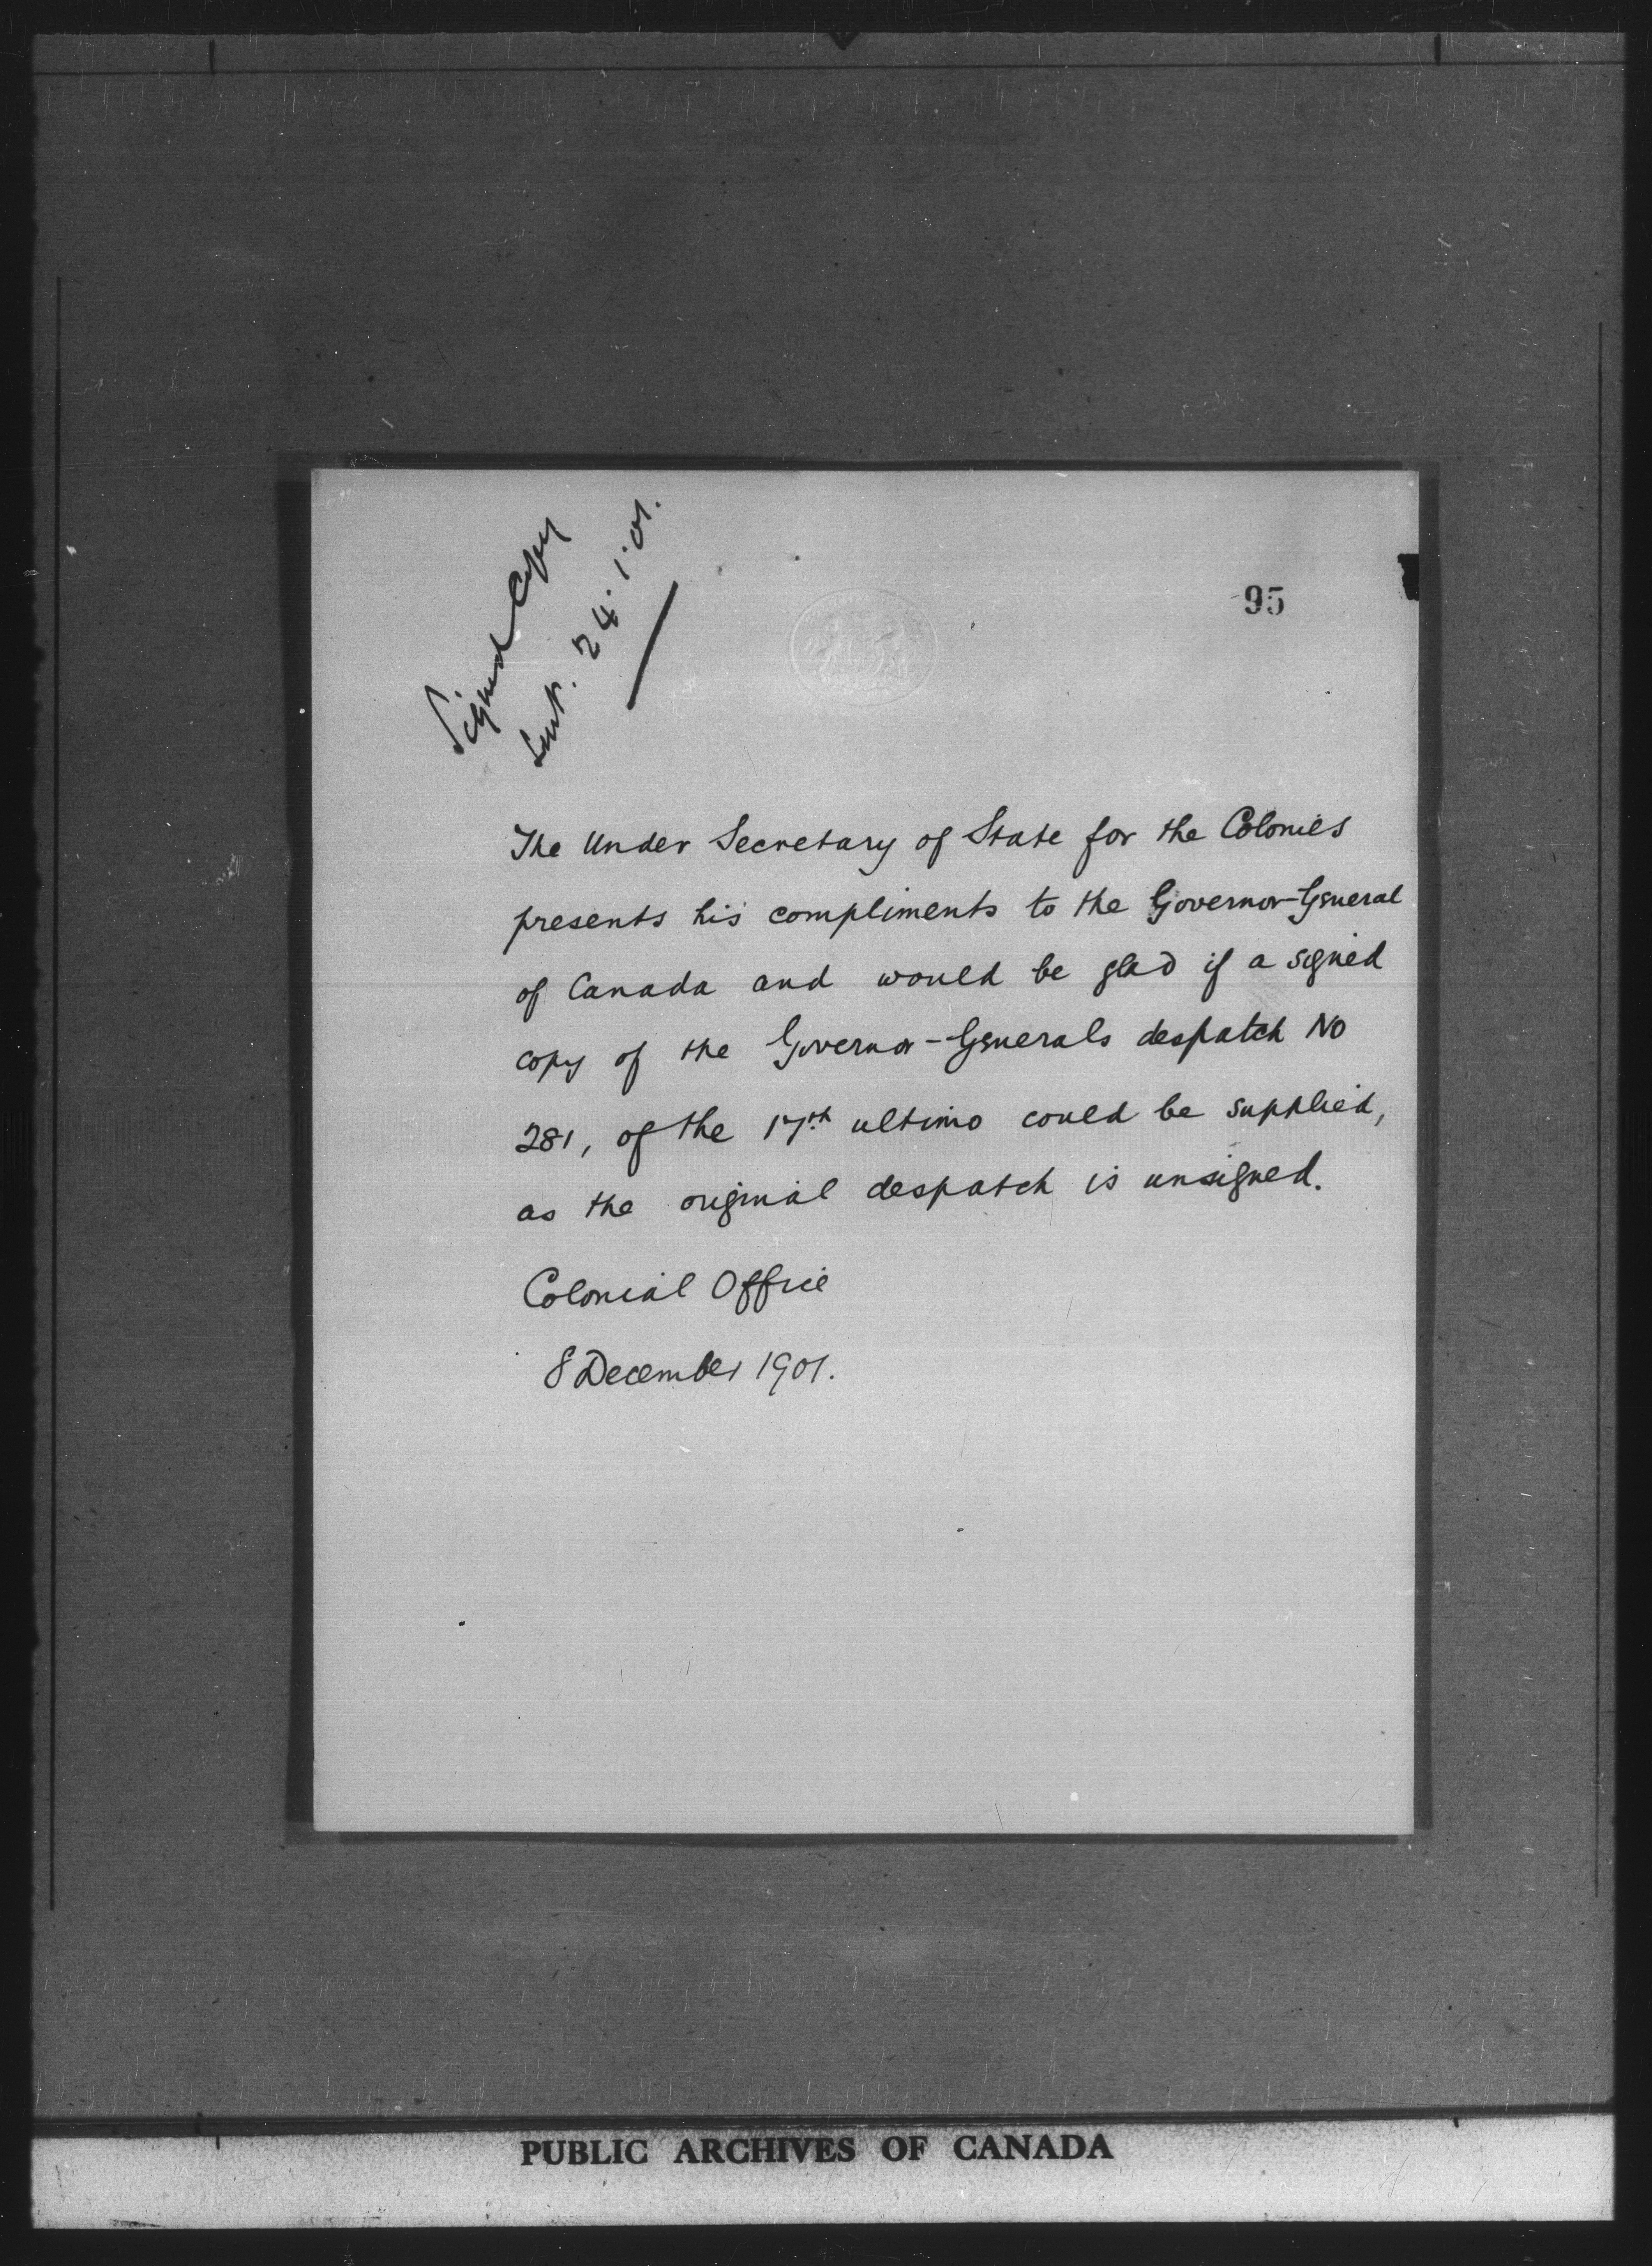 Signed Copy
Sent. 24.1.01.
95
The Under Secretary of State for the Colonies
presents his compliments to the Governor-General
of Canada and would be glad if a signed
copy of the Governor-Generals despatch No
281, of the 17th ultimo could be supplied,
as the original despatch is unsigned.
Colonial Office
8 December 1901.
PUBLIC ARCHIVES OF CANADA